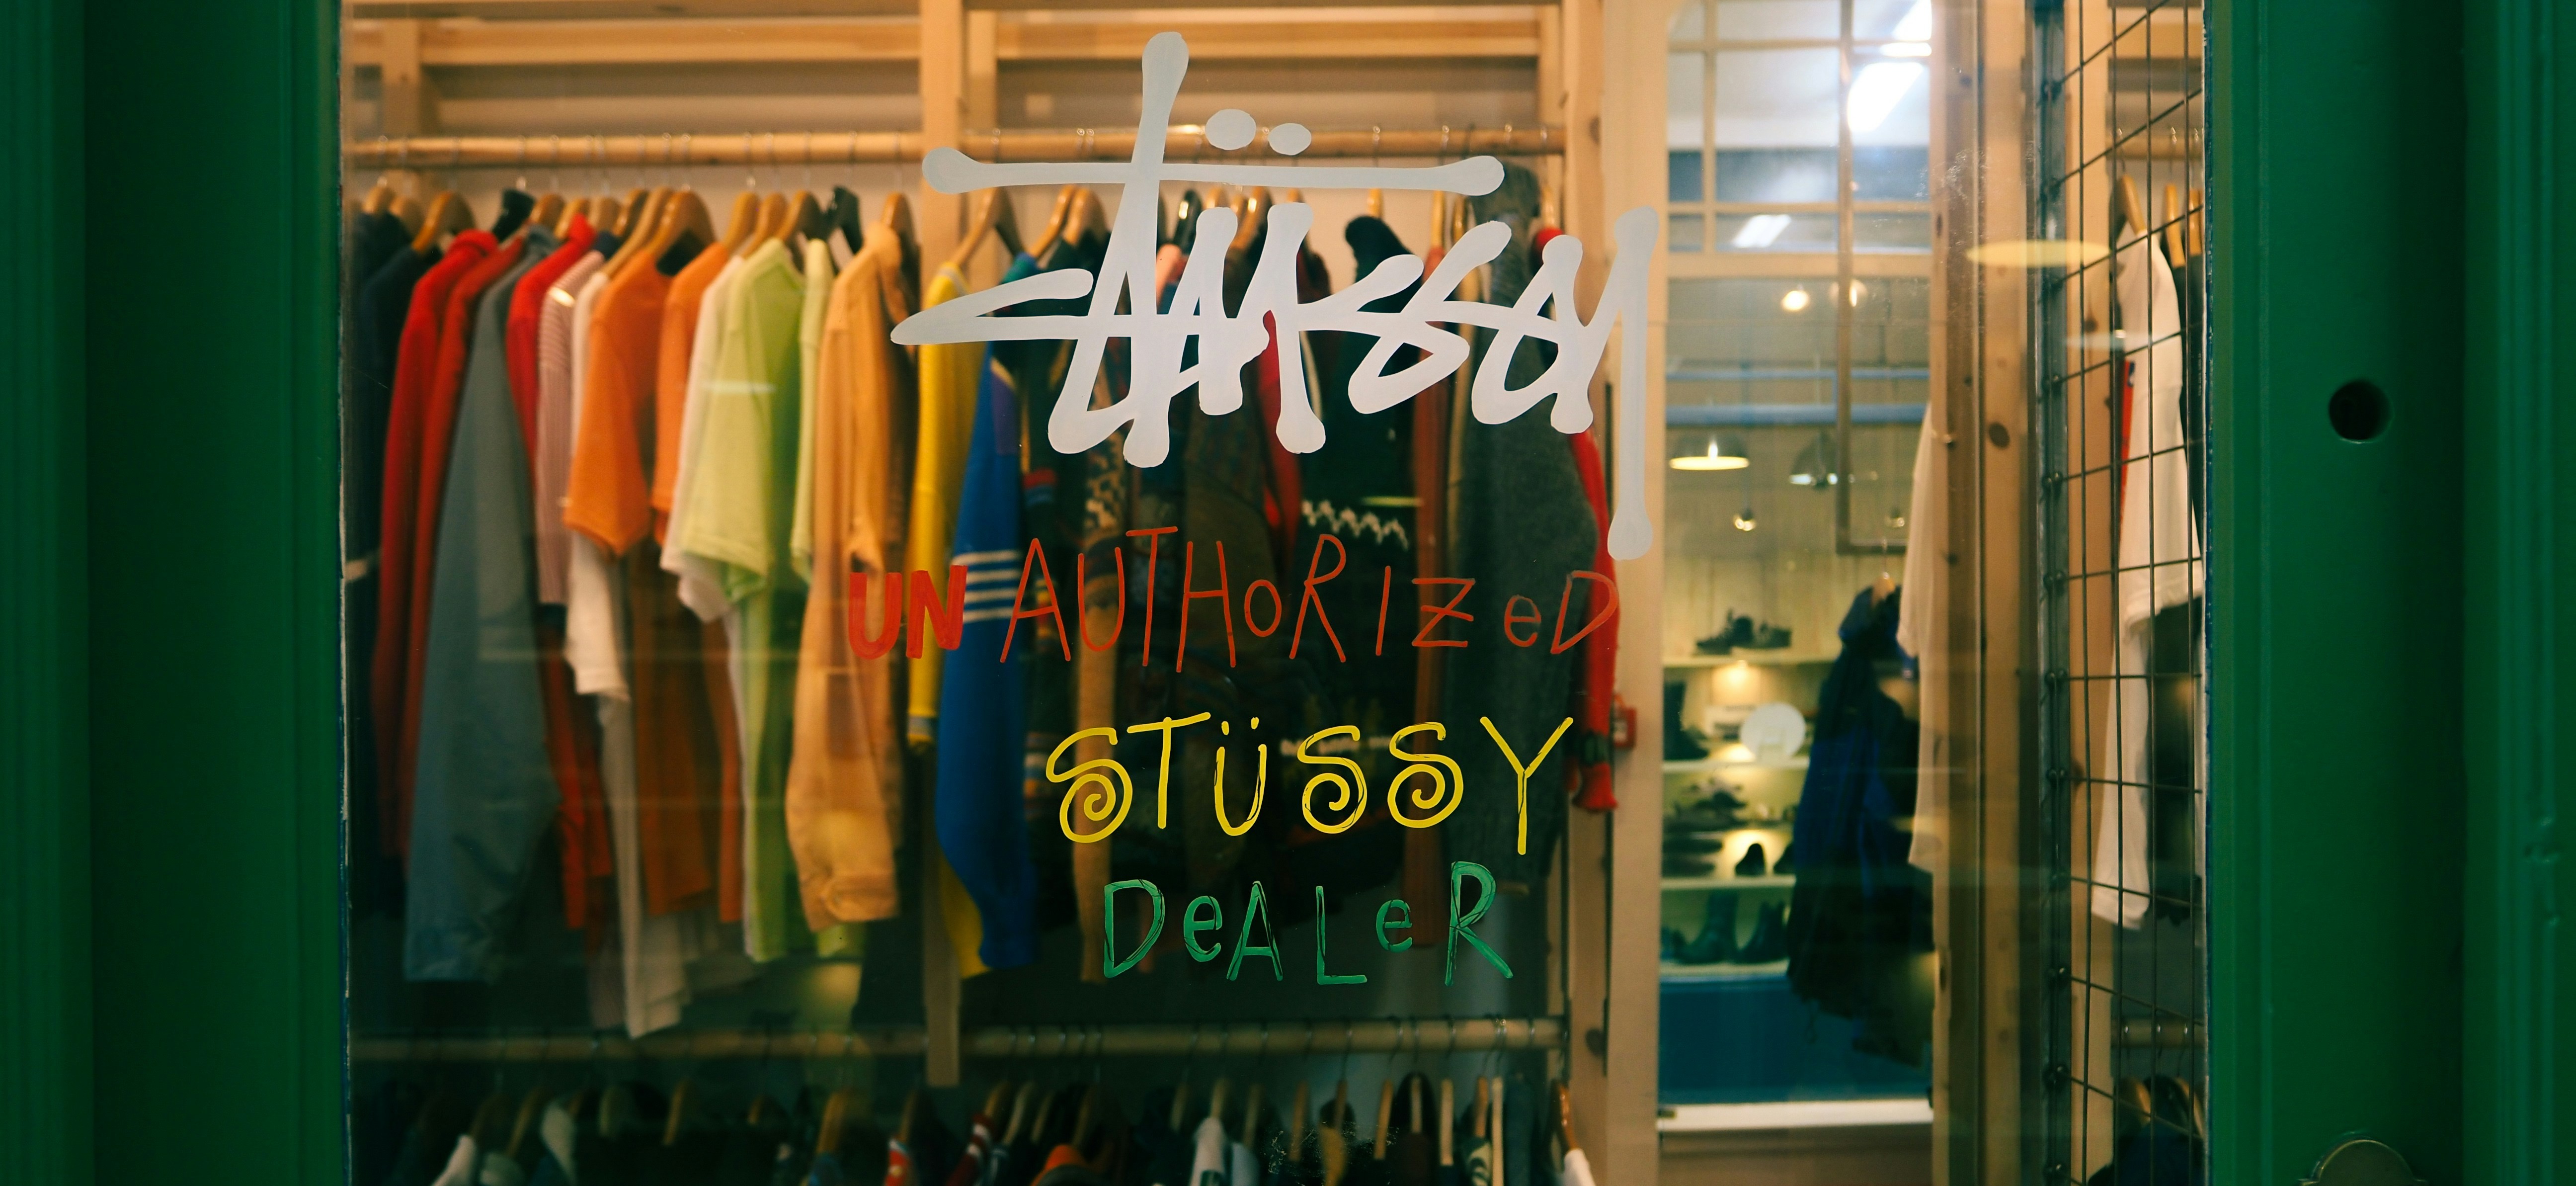 Stüssy
UNAUTHORIZeD
STÜSSY
DeALeR